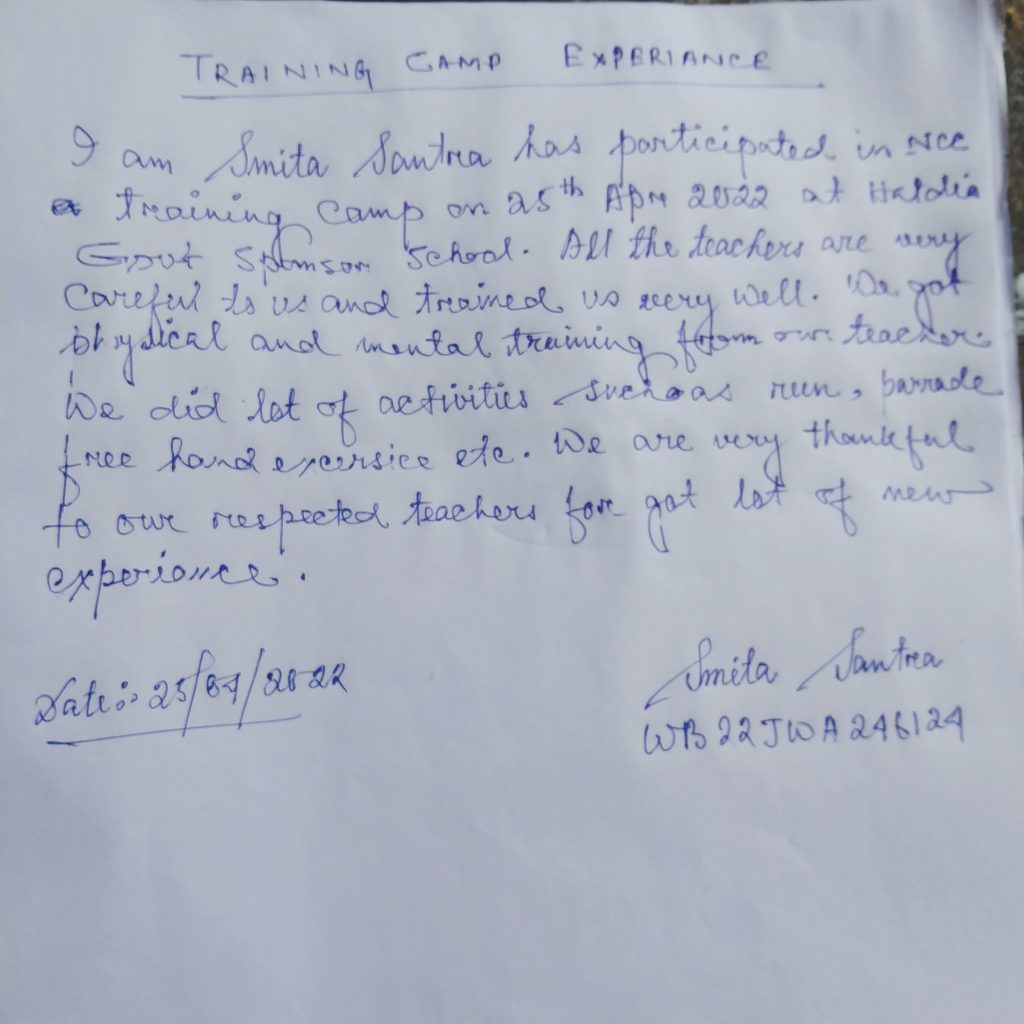 TRAINING CAMP EXPERIANCE
I am Smita Santra has participated in NCC
training camp on 25th Apr 2022 at Haldia
Govt Sponsor School. All the teachers are very
Careful to us and trained us very well. We got
physical and mental training from our teacher.
We did lot of activities such as run, parrade
free hand excersice etc. We are very thankful
to our respected teachers for got lot of new
experiance.
Date:- 25/04/2022
Smita Santra
WB22JWA246124